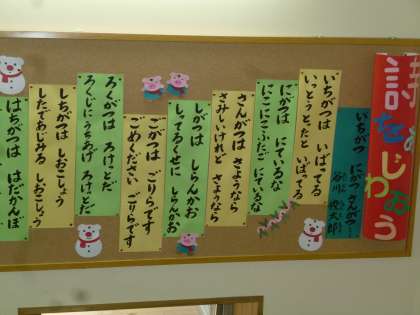 詩をよじわおう
いちがつ にがつ さんがつ…
谷川 俊太郎
いちがつは いばってる
いっとうとたと いばってる
にがつは にているな
にこにこふたご にているな
さんがつは さようなら
さみしいけれど さようなら
しがつは しらんかお
しってるくせに しらんかお
ごがつは ごりらです
ごめんください ごりらです
ろくがつは ろけっとだ
ろくじにうちあげ ろけっとだ
しちがつは しおこしょう
したであじみる しおこしょう
はちがつは はだかんぼ